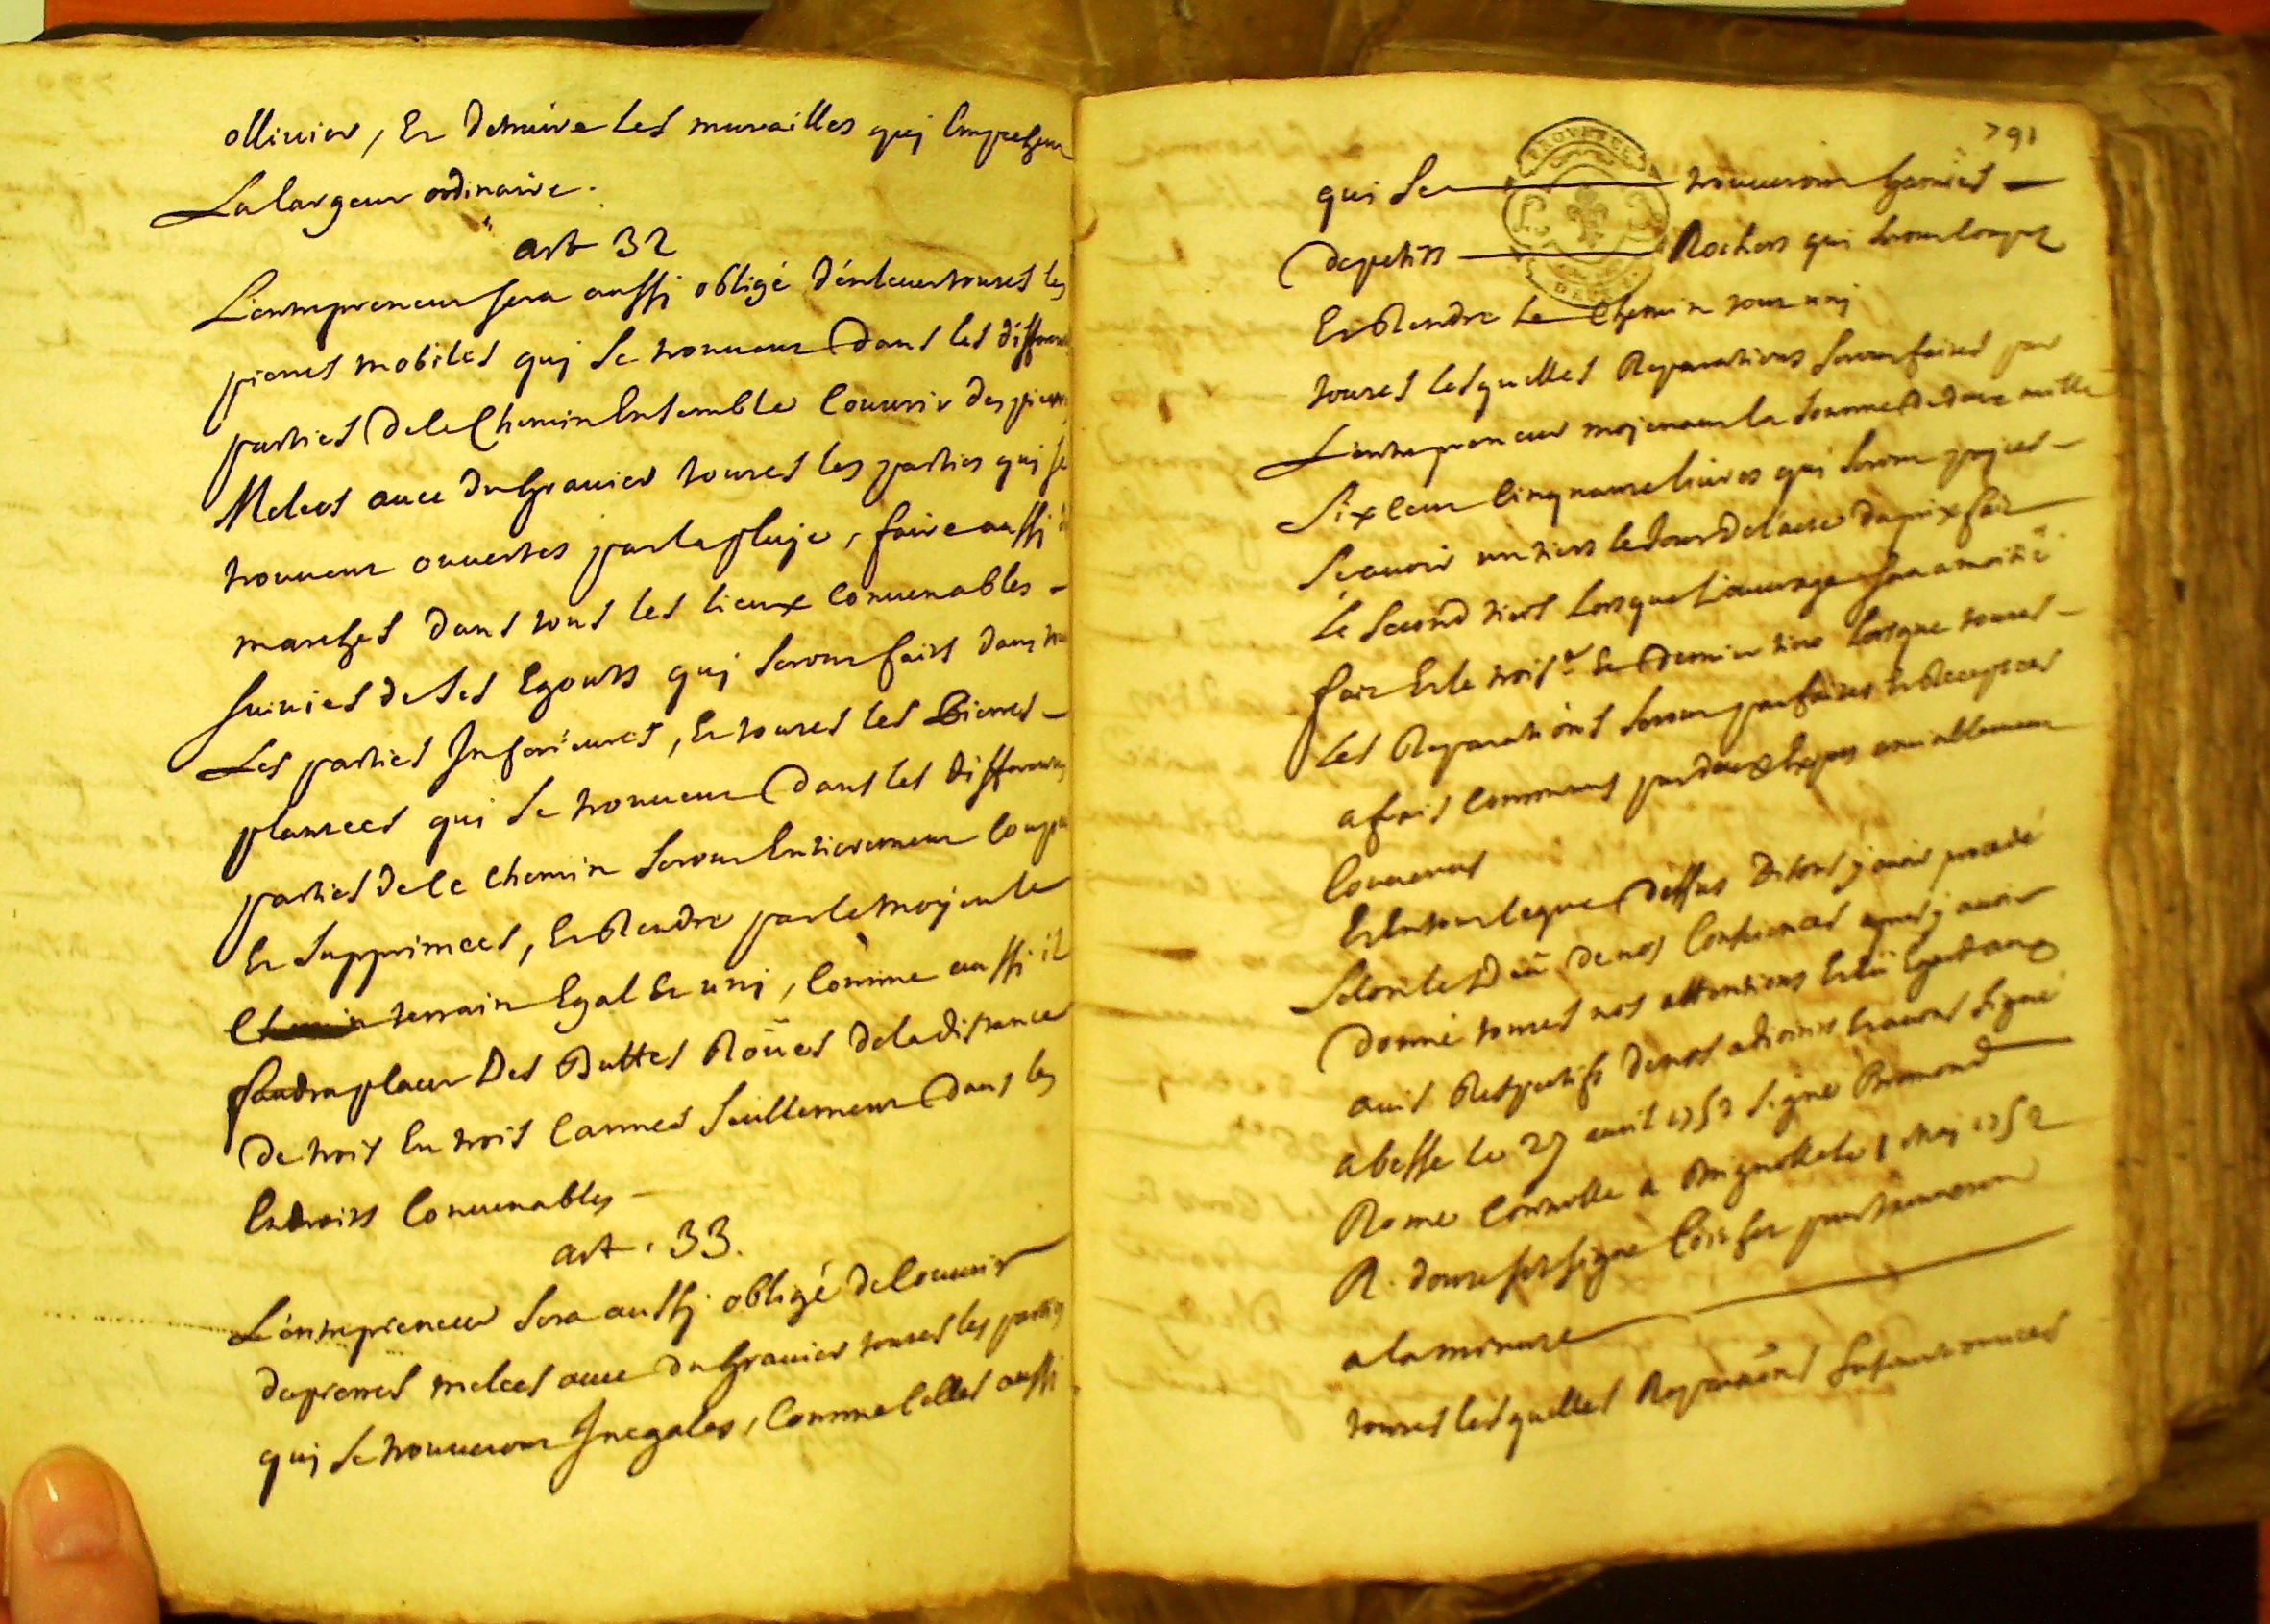 ollivier, Et detruire les murailles quj Empechent
La largeur ordinaire.
art 32
L'entrepreneur sera aussj obligé d'enlever toutes les
pierres mobiles quj se trouvent dans les differentes
parties de ce Chemin Ensemble Couvrir des pierres
Melees avec du Gravier toutes les parties quj se
trouvent ouvertes par la pluje, faire aussj des
marches dans tous les lieux Convenables
suivies de ses Egouts quj seront faits dans
Les parties Inferieures, Et toutes les Pierres
plantees qui se trouvent dans les differentes
parties de ce chemin seront Entierement Coupees
Et supprimees, Et Rendre par le moyen le
terrain Egal Et unj, Comme aussi il
faudra placer Des Buttes Roües de la distance
de trois En trois Cannes seullement dans les
Endroits Convenables
art. 33.
L'entrepreneur sera aussj obligé de Couvrir
de pierres melees avec du Gravier toutes les parties
quj se trouveront Inegales, Comme Celles aussi
791
PROVENCE
qui se trouveront Garnies
de petits Rochers qui seront Coupez
Et Rendre le Chemin tout unj
toutes lesquelles Reparations seront faites par
L'entrepreneur mojenant la somme de deux mille
six Cent Cinquante livres qui seront pajees
sçavoir un tiers le Jour de l'acte du prix fait
le second tiers lorsque L'ouvrage sera a moitié
fait Et le trois.e Et dernier tiers lorsque toutes
les Reparations seront parfaites Et Receptees
a frais Communs par deux Expers amiablement
Convenus
Et En tout le que dessus Disons y avoir procedé
selon le Dû de nos Consciences apres j avoir
donné toutes nos attentions Et Eü Egard aux
avis Respectifs de nos adjoints Et avons signé
a besse le 27 avril 1752 signé Bremond
Rome Controllé a Brignolle le 1 Maj 1752
R. douze sols signé
a la minute
toutes lesquelles Reparations